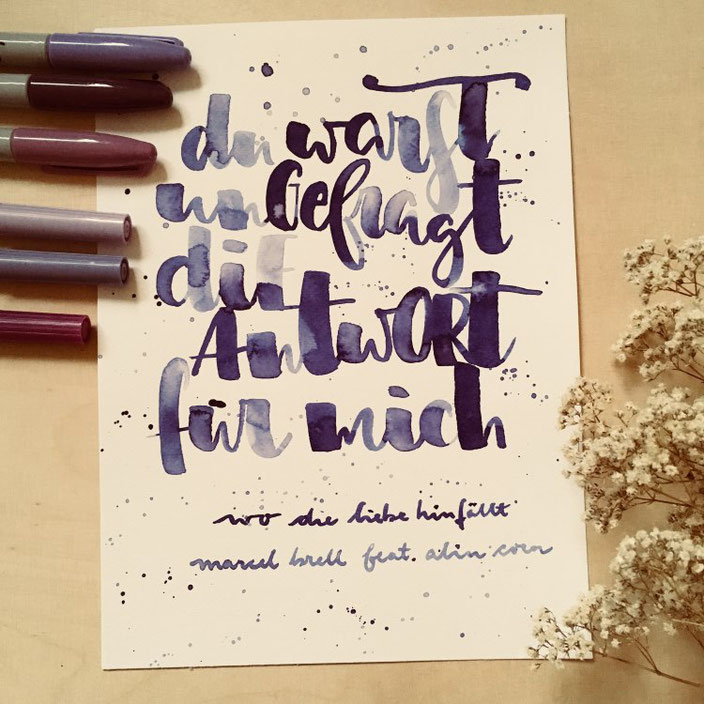 du warst
unGefragt
die
AntwORT
für mich
wo die liebe hinfällt
marcel brell feat. alin coen